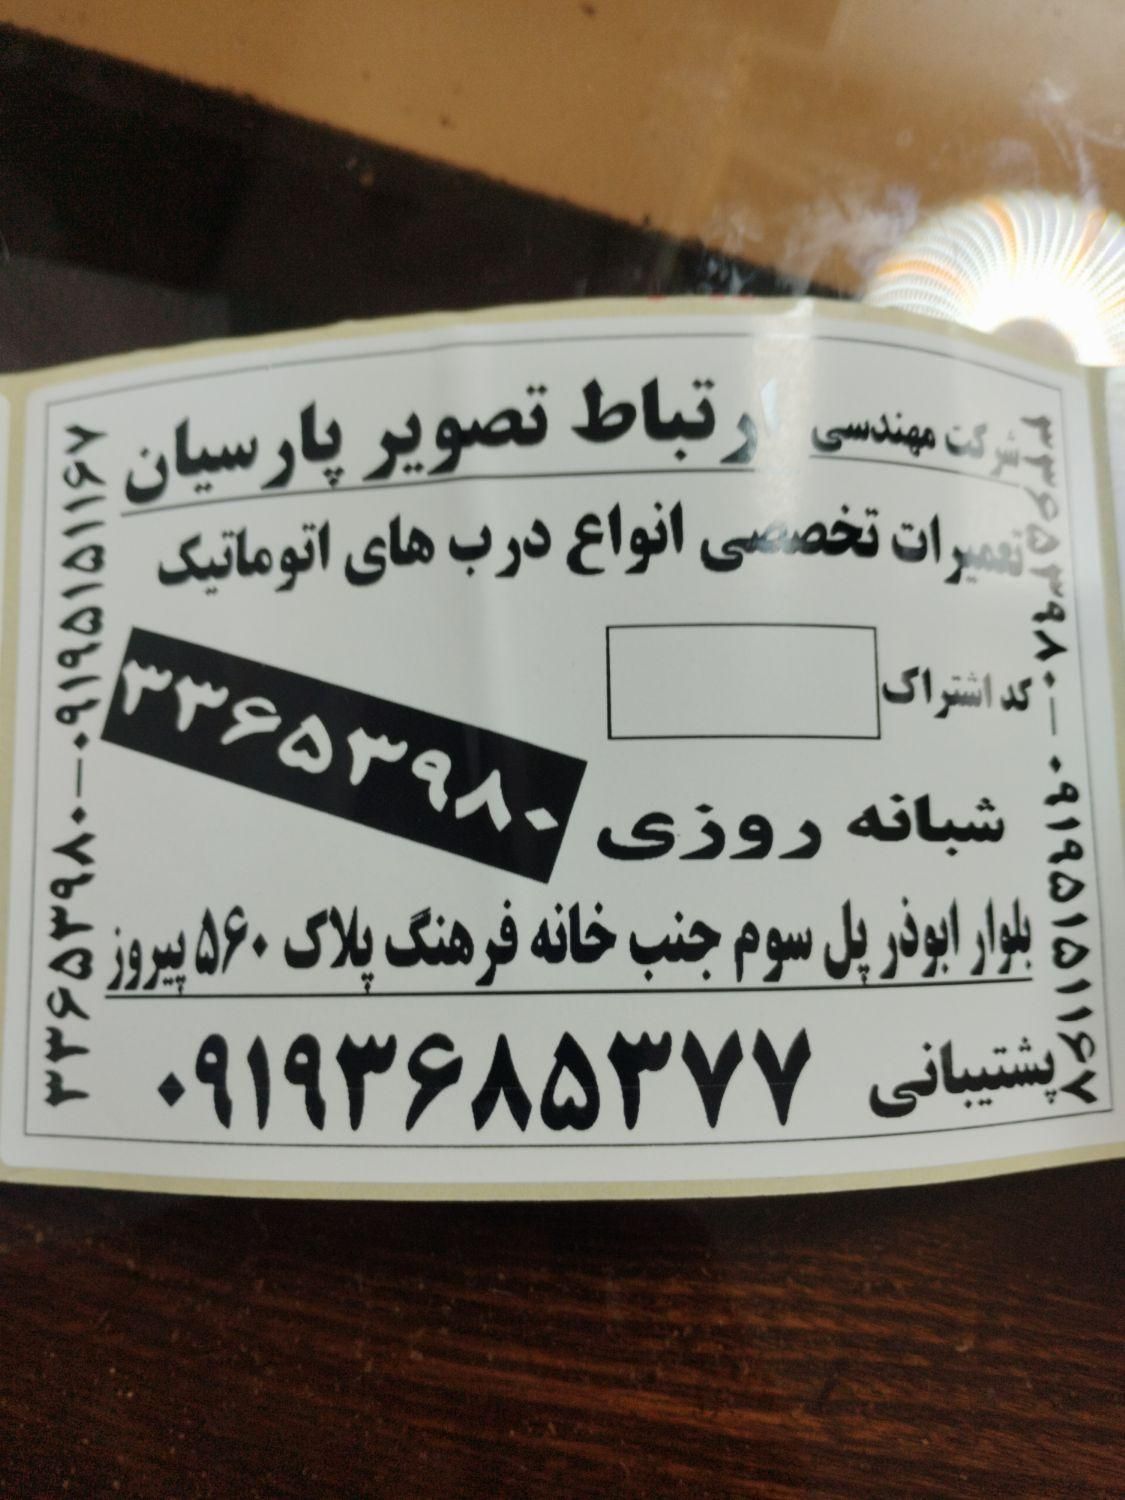 شرکت مهندسی ارتباط تصویر پارسیان
تعمیرات تخصصی انواع درب های اتوماتیک
کد اشتراک
۳۳۶۵۳۹۸۰
شبانه روزی
بلوار ابوذر پل سوم جنب خانه فرهنگ پلاک ۵۶۰ پیروز
پشتیبانی ۰۹۱۹۳۶۸۵۳۷۷
۳۳۶۵۳۹۸۰-۰۹۱۹۵۱۵۱۱۶۷
۳۳۶۵۳۹۸۰-۰۹۱۹۵۱۵۱۱۶۷